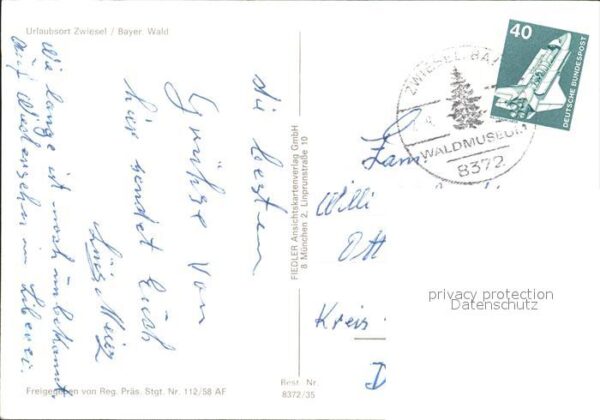 Urlaubsort Zwiesel / Bayer. Wald
die besten
Grüße von
hier sendet Euch
Wie lange ist noch unbekannt.
auf Wiedersehn in
FIEDLER Ansichtskartenverlag GmbH
8 München 2, Linprunstraße 10
Freigegeben von Reg. Präs. Stgt. Nr. 112/58 AF
Best. Nr.
8372/35
40
DEUTSCHE BUNDESPOST
ZWIESEL, BAY
WALDMUSEUM
8372
Fam.
Willi
Ott
Kreis
D
privacy protection
Datenschutz